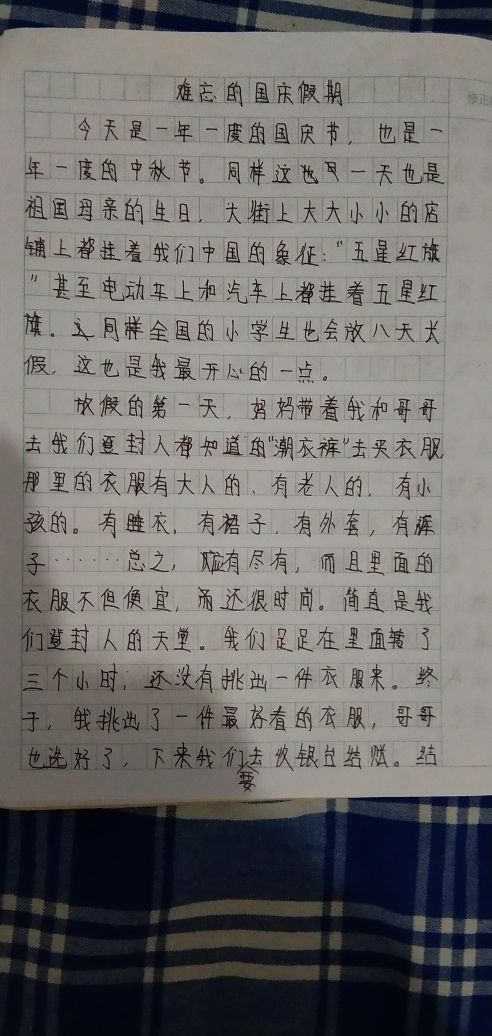 难忘的国庆假期
今天是一年一度的国庆节，也是一
年一度的中秋节。同样这也一天也是
祖国母亲的生日，大街上大大小小的店
铺上都挂着我们中国的象征：“五星红旗
”甚至电动车上和汽车上都挂着五星红
旗。同样全国的小学生也会放八天长
假，这也是我最开心的一点。
放假的第一天，妈妈带着我和哥哥
去我们登封人都知道的“潮衣裤”去买衣服
那里的衣服有大人的、有老人的，有小
孩的。有睡衣，有裙子，有外套，有裤
子……总之，应有尽有，而且里面的
衣服不但便宜，而还很时尚。简直是我
们登封人的天堂。我们足足在里面转了
三个小时，还没有挑出一件衣服来。终
于，我挑出了一件最好看的衣服，哥哥
也选好了，下来我们要去收银台结账。结